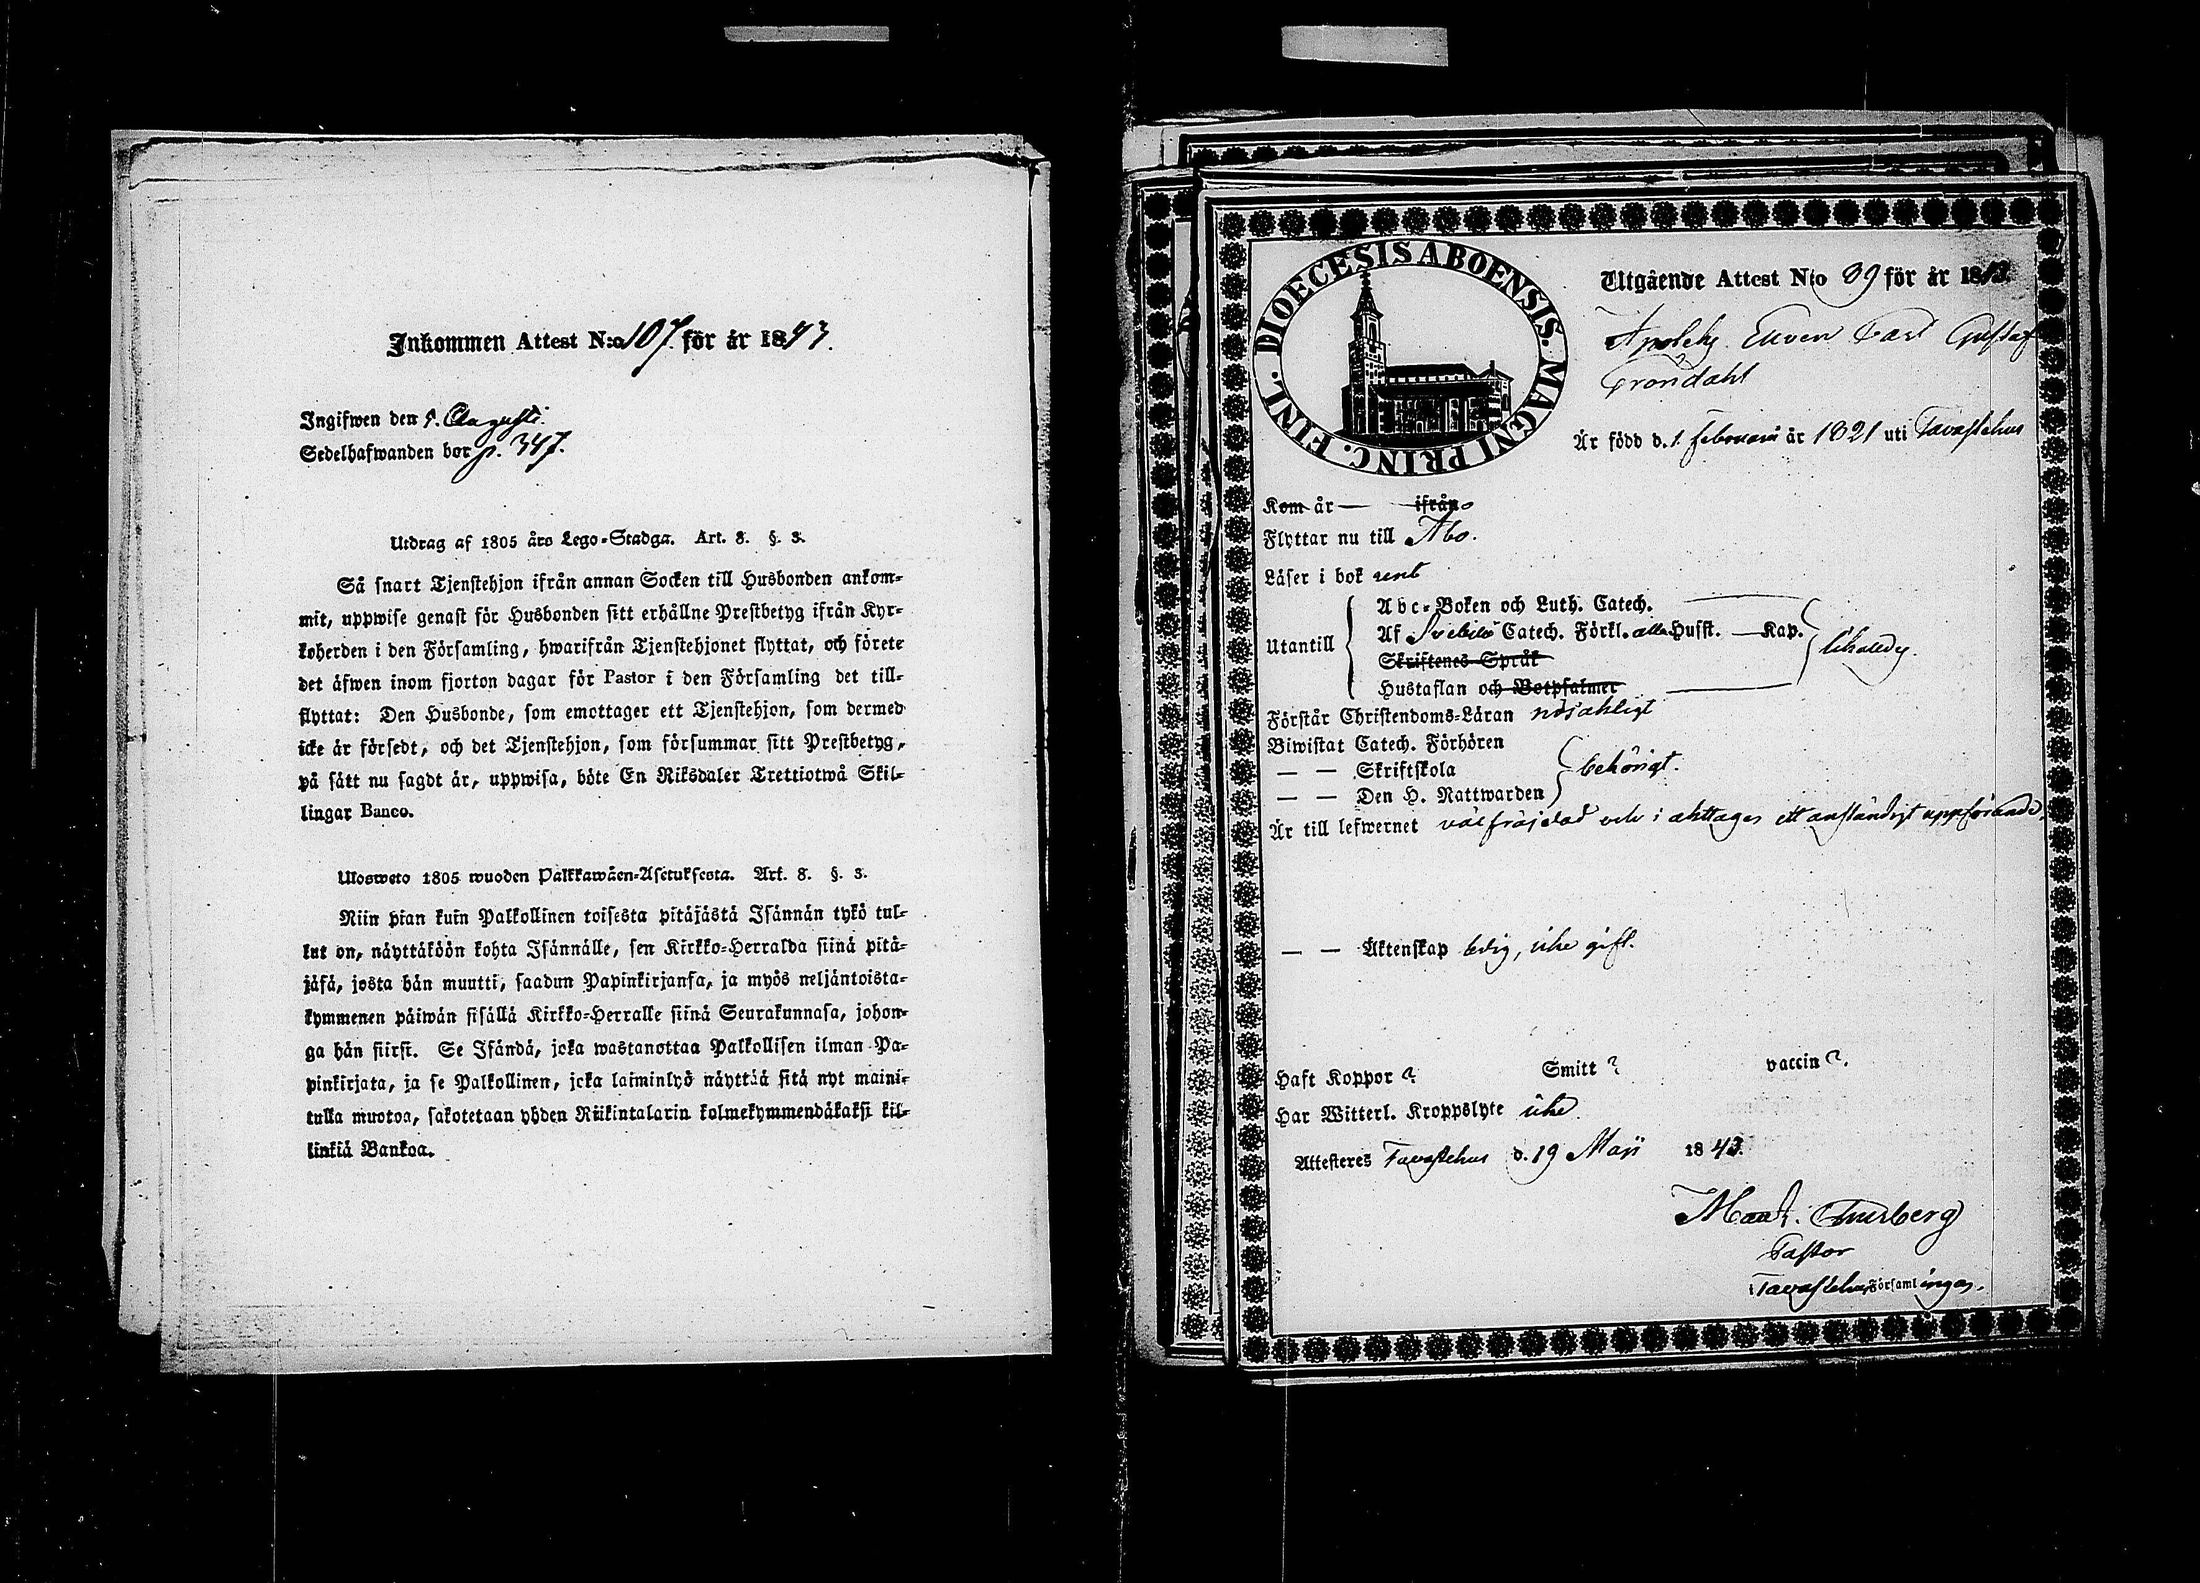 Inkommen Attest N:o 107 för år 1843.
Ingifwen den 5. Augusti.
Sedelhafwanden bor p. 347.
Utdrag af 1805 års Lego-Stadga. Art. 8. §. 3.
Så snart Tjenstehjon ifrån annan Socken till Husbonden ankom-
mit, uppwise genast för Husbonden sitt erhållne Prestbetyg ifrån Kyr-
koherden i den Församling, hwarifrån Tjenstehjonet flyttat, och förete
det äfwen inom fjorton dagar för Pastor i den Församling det till-
flyttat: Den Husbonde, som emottager ett Tjenstehjon, som dermed
icke är försedt, och det Tjenstehjon, som försummar sitt Prestbetyg,
på sätt nu sagdt är, uppwisa, böte En Riksdaler Trettiotwå Skil-
lingar Banco.
Ulosweto 1805 wuoden Palkkawäen-Asetuksesta. Art. 8. §. 3.
Niin pian kuin Palkollinen toisesta pitäjästä Isännän tykö tul-
lut on, näyttäköön kohta Isännälle, sen Kirkko-Herralda siinä pitä-
jäsä, josta hän muutti, saadun Papinkirjansa, ja myös neljäntoista-
kymmenen päiwän sisällä Kirkko-Herralle siinä Seurakunnasa, johon-
ga hän siirsi. Se Isändä, joka wastanottaa Palkollisen ilman Pa-
pinkirjata, ja se Palkollinen, joka laiminlyö näyttää sitä nyt maini-
tulla muotoa, sakotetaan yhden Riikintalarin kolmekymmendäkaksi kil-
linkiä Bankoa.
DIOECESIS ABOENSIS. MAGNI PRINC. FINL.
Utgående Attest N:o 39 för år 1843.
Apothk. Eleven Carl Gustaf
Gröndahl
Är född d. 1. Februarii år 1821 uti Tavastehus
Kom år — ifrån
Flyttar nu till Åbo.
Läser i bok rent
Utantill
Abc-Boken och Luth. Catech.
Af Svebilii Catech. Förkl. alla Husst. — Kap.
Skriftenes Språk
Hustaflan och Botpsalmer
Förstår Christendoms-Läran nöjaktligt
Biwistat Catech. Förhören
— — Skriftskola
— — Den H. Nattwarden
behörigt.
Är till lefwernet välfräjdad och iakttager ett anständigt uppförande.
— — Äktenskap ledig, icke gift.
Haft Koppor ? Smitt ? vaccin ?.
Har Witterl. Kroppslyte icke
Attesteres Tavastehus d. 19 Maji 1843.
Pastor
i Tavastehus Församlingar.